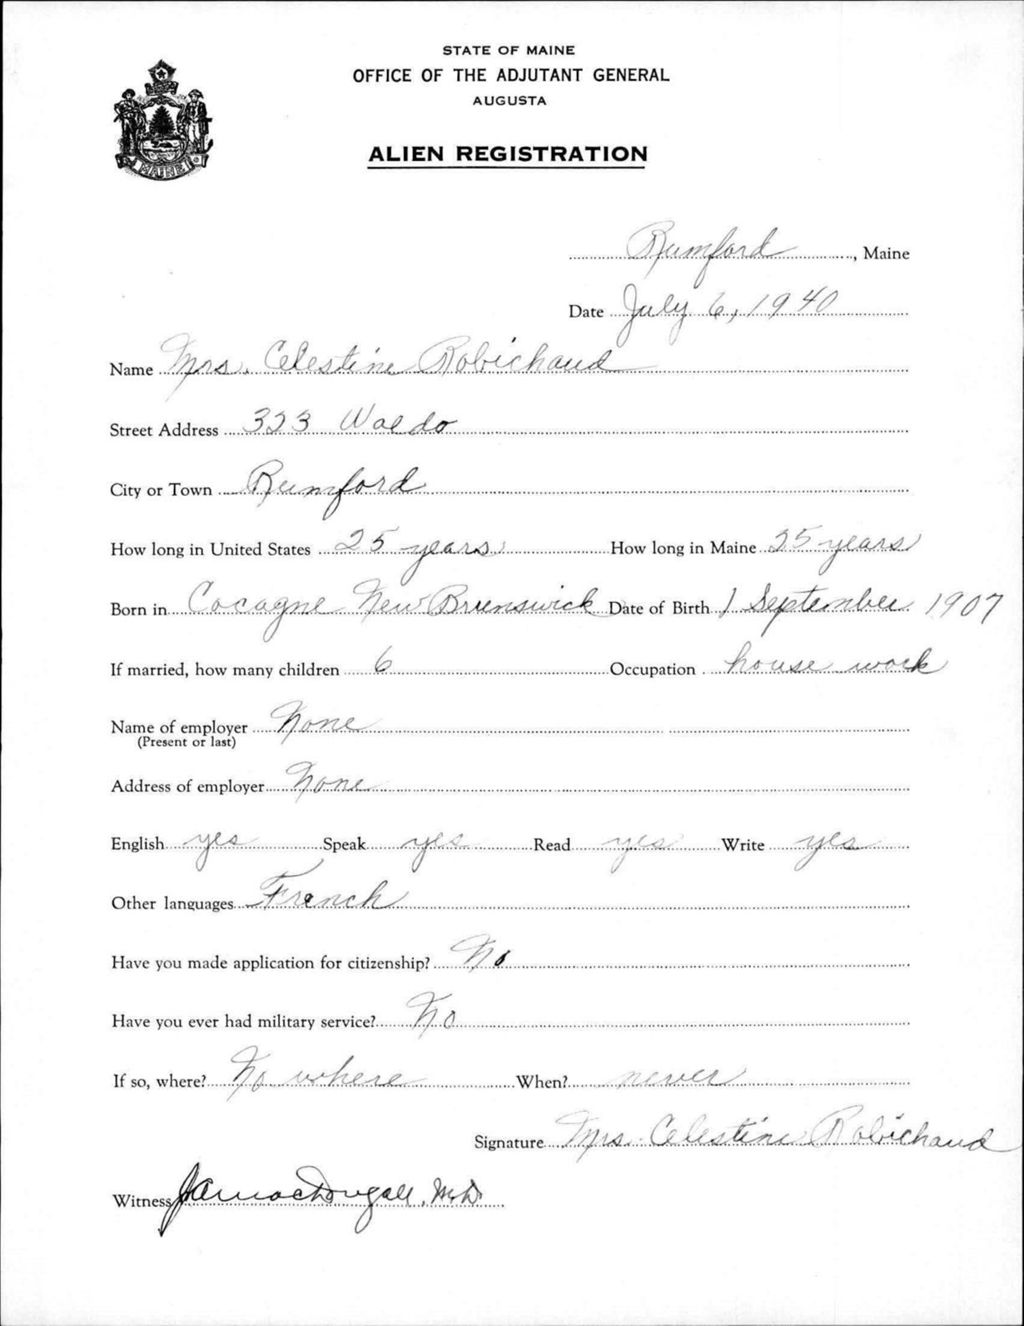 STATE OF MAINE
OFFICE OF THE ADJUTANT GENERAL
AUGUSTA
ALIEN REGISTRATION
MAINE
Rumford, Maine
Date July 6, 1940
Name Mrs. Celestine Robichaud
Street Address 323 Waldo
City or Town Rumford
How long in United States 25 years How long in Maine 25 years
Born in Cocagne New Brunswick Date of Birth 1 September 1907
If married, how many children 6 Occupation house work
Name of employer None
(Present or last)
Address of employer None
English yes Speak yes Read yes Write yes
Other languages French
Have you made application for citizenship? No
Have you ever had military service? No
If so, where? No where When? never
Signature Mrs. Celestine Robichaud
Witness J.A. MacDougall, M.D.